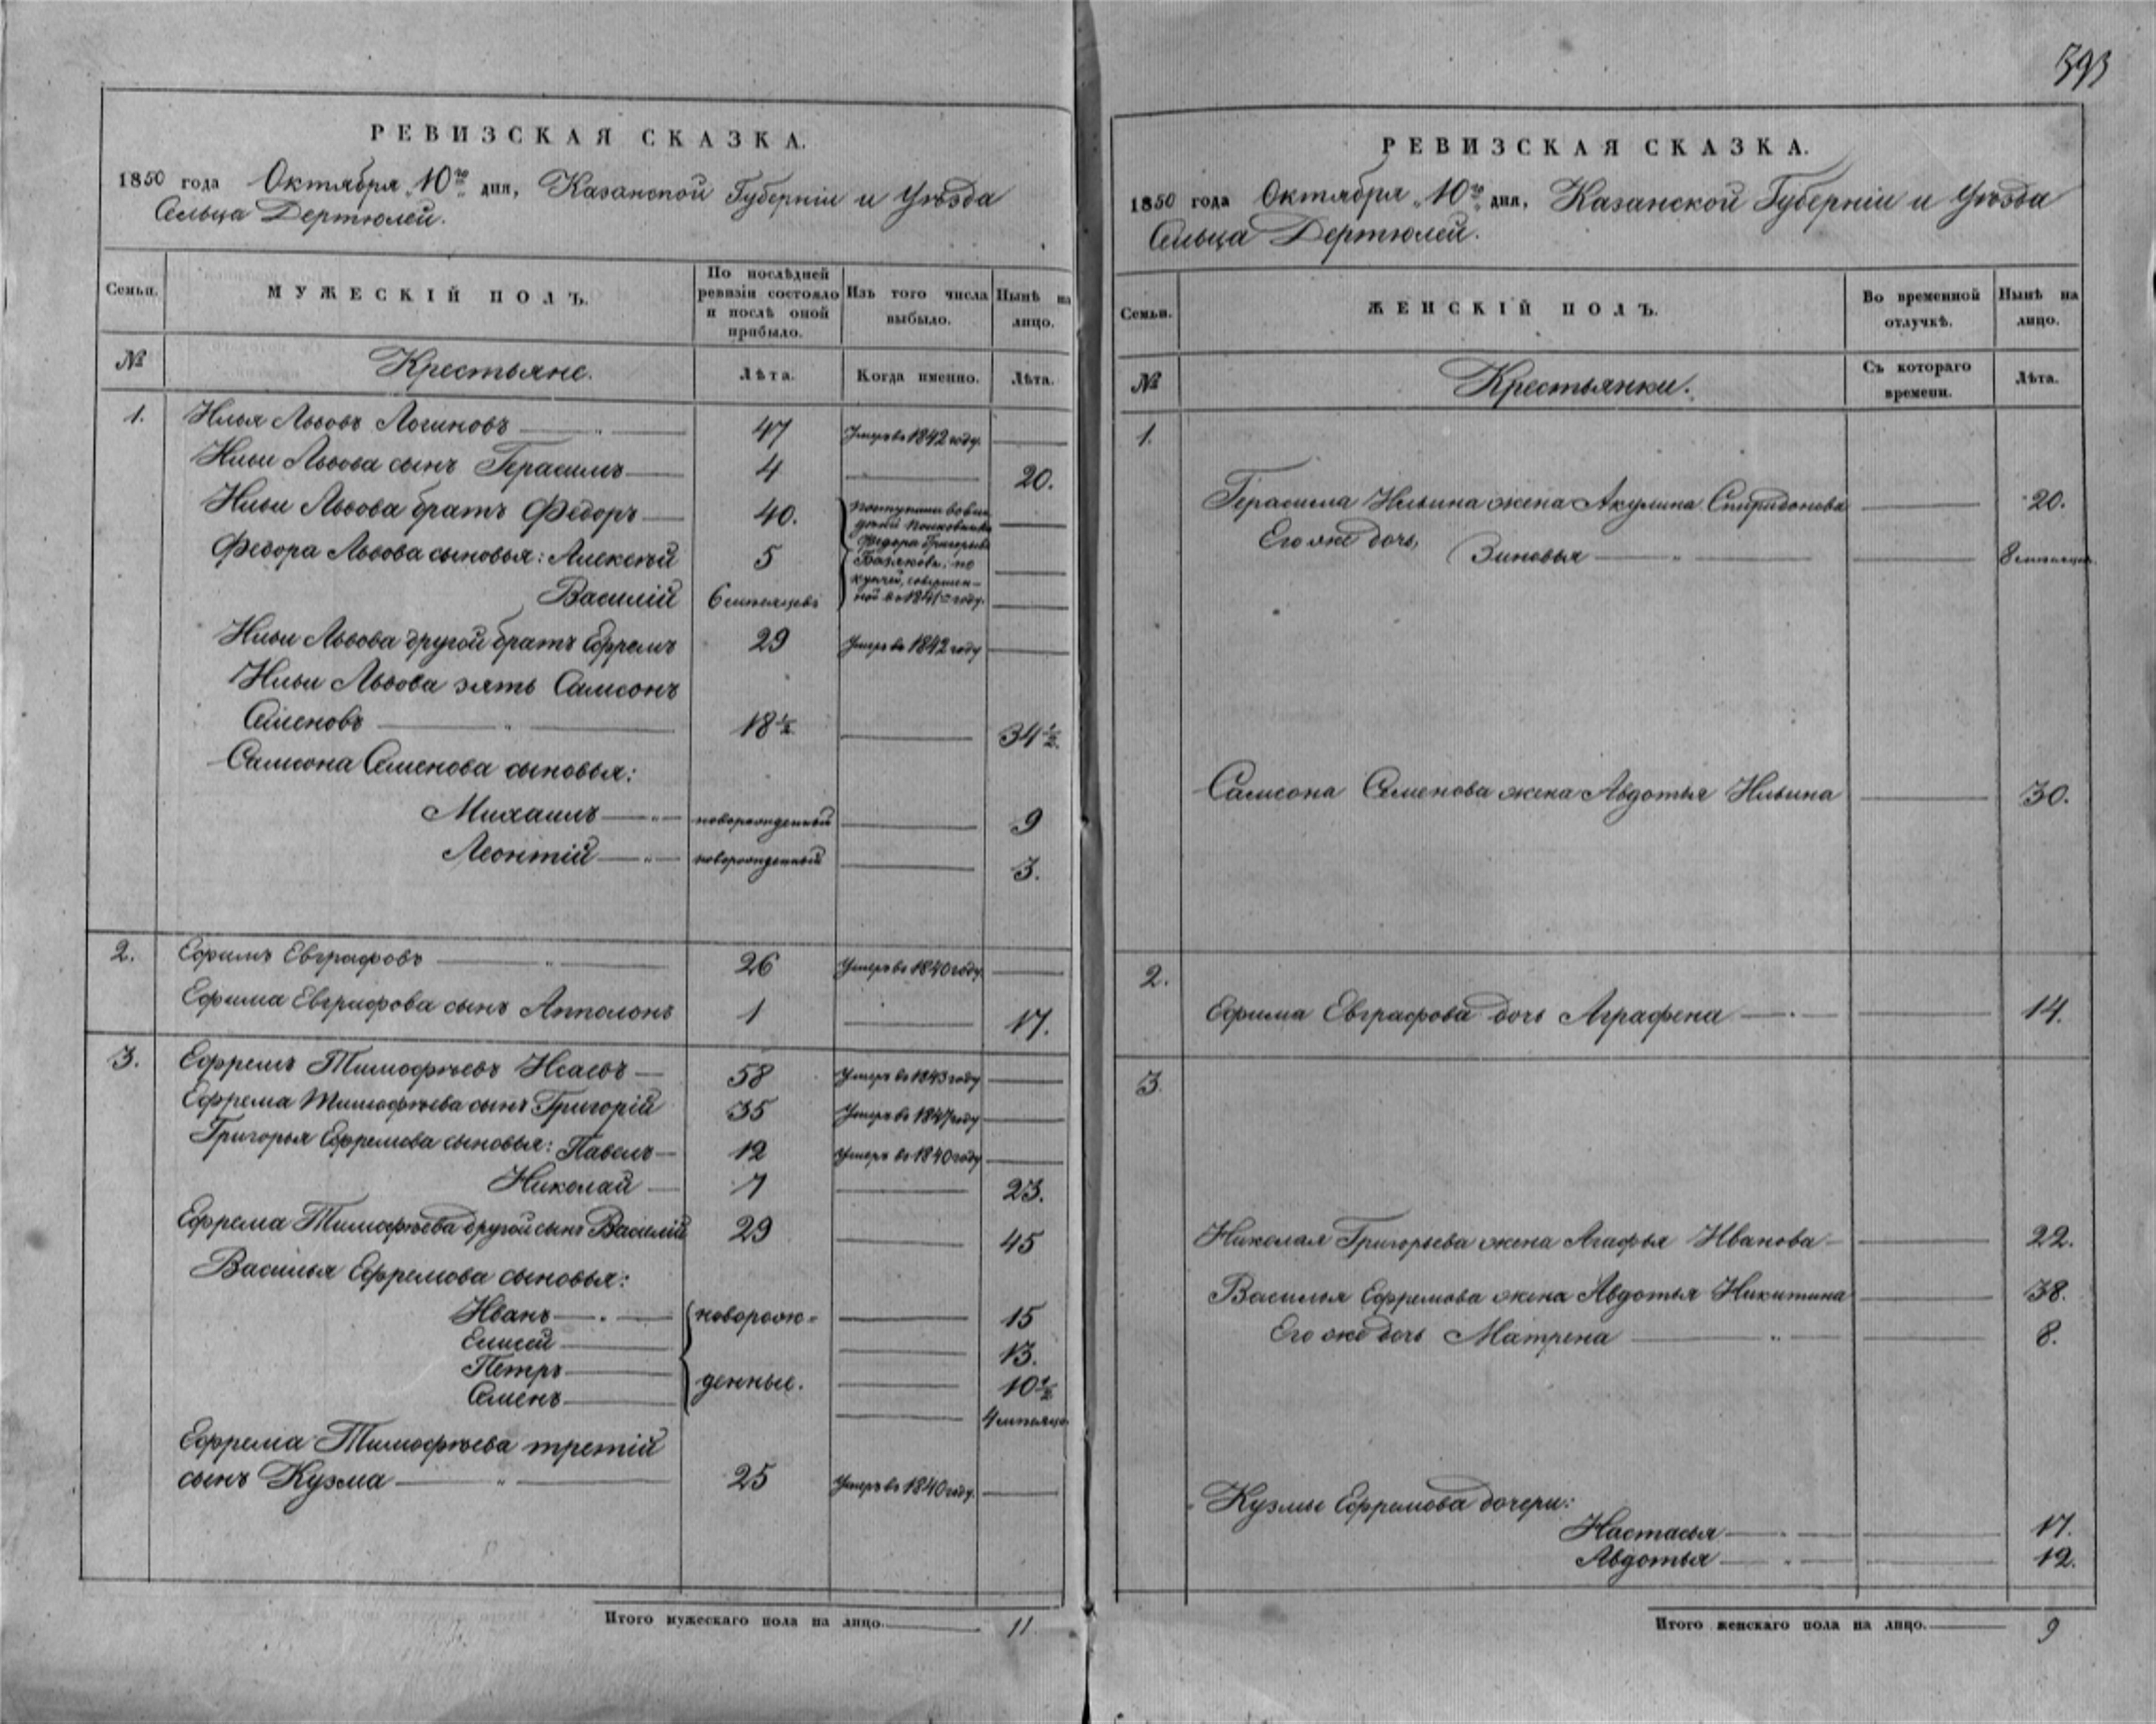 393
РЕВИЗСКАЯ СКАЗКА.
1850 года Октября „10го дня, Казанской Губерніи и Уѣзда
Сельца Дертюлей.
Семьи.
МУЖЕСКІЙ ПОЛЪ.
По послѣдней
ревизіи состояло
и послѣ оной
прибыло.
Изъ того числа
выбыло.
Нынѣ на
лицо.
№
Крестьяне.
Лѣта.
Когда именно.
Лѣта.
1. Илья Львовъ Логиновъ — „ — 47 Умеръ въ 1842 году. —
Ильи Львова сынъ Герасимъ — 4 — 20.
Ильи Львова братъ Федоръ — 40. —
Федора Львова сыновья: Алексѣй 5 —
Василій 6 месяцевъ —
поступили во вла
дѣніи Полковника
Федора Григорьева
по
купчей, совершен-
ной въ 184 году.
Ильи Львова другой братъ Ефремъ 29 Умеръ въ 1842 году —
Ильи Львова зять Самсонъ
Семеновъ — „ — 18½ — 34½.
Самсона Семенова сыновья:
Михаилъ — „ — новорожденный — 9
Леонтій — „ — новорожденный — 3.
2. Ефимъ Евграфовъ — „ — 26 Умеръ въ 1840 году. —
Ефима Евграфова сынъ Апполонъ 1 — 17.
3. Ефремъ Тимофѣевъ Исаевъ — 58 Умеръ въ 1843 году —
Ефрема Тимофѣева сынъ Григорій 35 Умеръ въ 1847 году —
Григорья Ефремова сыновья: Павелъ — 12 Умеръ въ 1840 году —
Николай — 7 — 23.
Ефрема Тимофѣева другой сынъ Василій 29 — 45
Василья Ефремова сыновья:
Иванъ — „ — новорож= — 15
Елисей — — 13.
Петръ — денные. — 10½
Семенъ — — 4 месяца
Ефрема Тимофѣева третій
сынъ Кузма — „ — 25 Умеръ въ 1840 году. —
Итого мужескаго пола на лицо. — 11
РЕВИЗСКАЯ СКАЗКА.
1850 года Октября „10го дня, Казанской Губерніи и Уѣзда
Сельца Дертюлей.
Семьи.
ЖЕНСКІЙ ПОЛЪ.
Во временной
отлучкѣ.
Нынѣ на
лицо.
№
Крестьянки.
Съ котораго
времени.
Лѣта.
1.
Герасима Ильина жена Акулина Спиридонова — 20.
Его же дочь, Зиновья — „ — — 8 месяцев.
Самсона Семенова жена Авдотья Ильина — 30.
2.
Ефима Евграфова дочь Аграфена — „ — — 14.
3.
Николая Григорьева жена Агафья Иванова — — 22.
Василья Ефремова жена Авдотья Никитина — 38.
Его же дочь Матрена — „ — — 8.
Кузмы Ефремова дочери:
Настасья — „ — — 17.
Авдотья — „ — — 12.
Итого женскаго пола на лицо. — 9